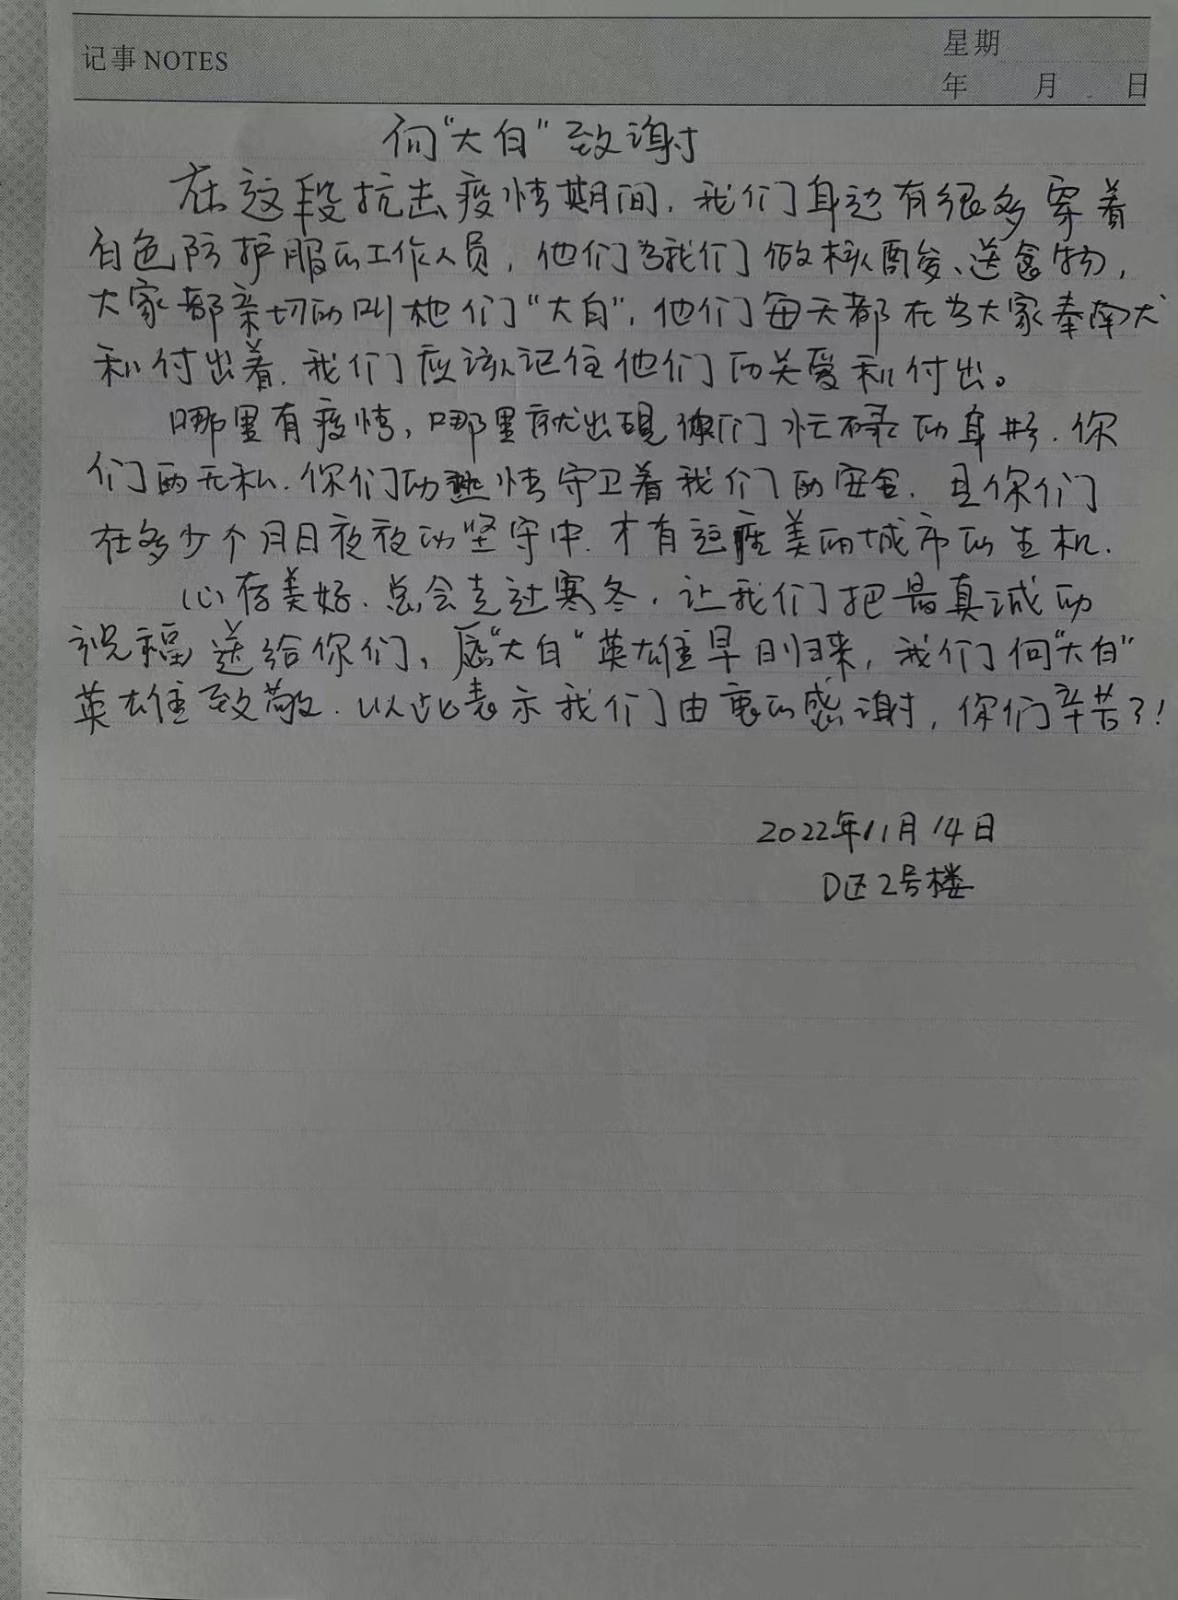 记事 NOTES
星期
年 月 日
向“大白”致谢
在这段抗击疫情期间，我们身边有很多穿着
白色防护服的工作人员，他们为我们做核酸、送食物，
大家都亲切的叫他们“大白”，他们每天都在为大家奉献
和付出着，我们应该记住他们的关爱和付出。
哪里有疫情，哪里就出现你们忙碌的身影，你
们的无私，你们的热情守卫着我们的安全，且你们
在多少个月日夜夜的坚守中，才有这座美的城市的生机，
心存美好，总会走过寒冬，让我们把最真诚的
祝福送给你们，愿“大白”英雄早日归来，我们向“大白”
英雄致敬，以此表示我们由衷的感谢，你们辛苦了！
2022年11月14日
D区2号楼